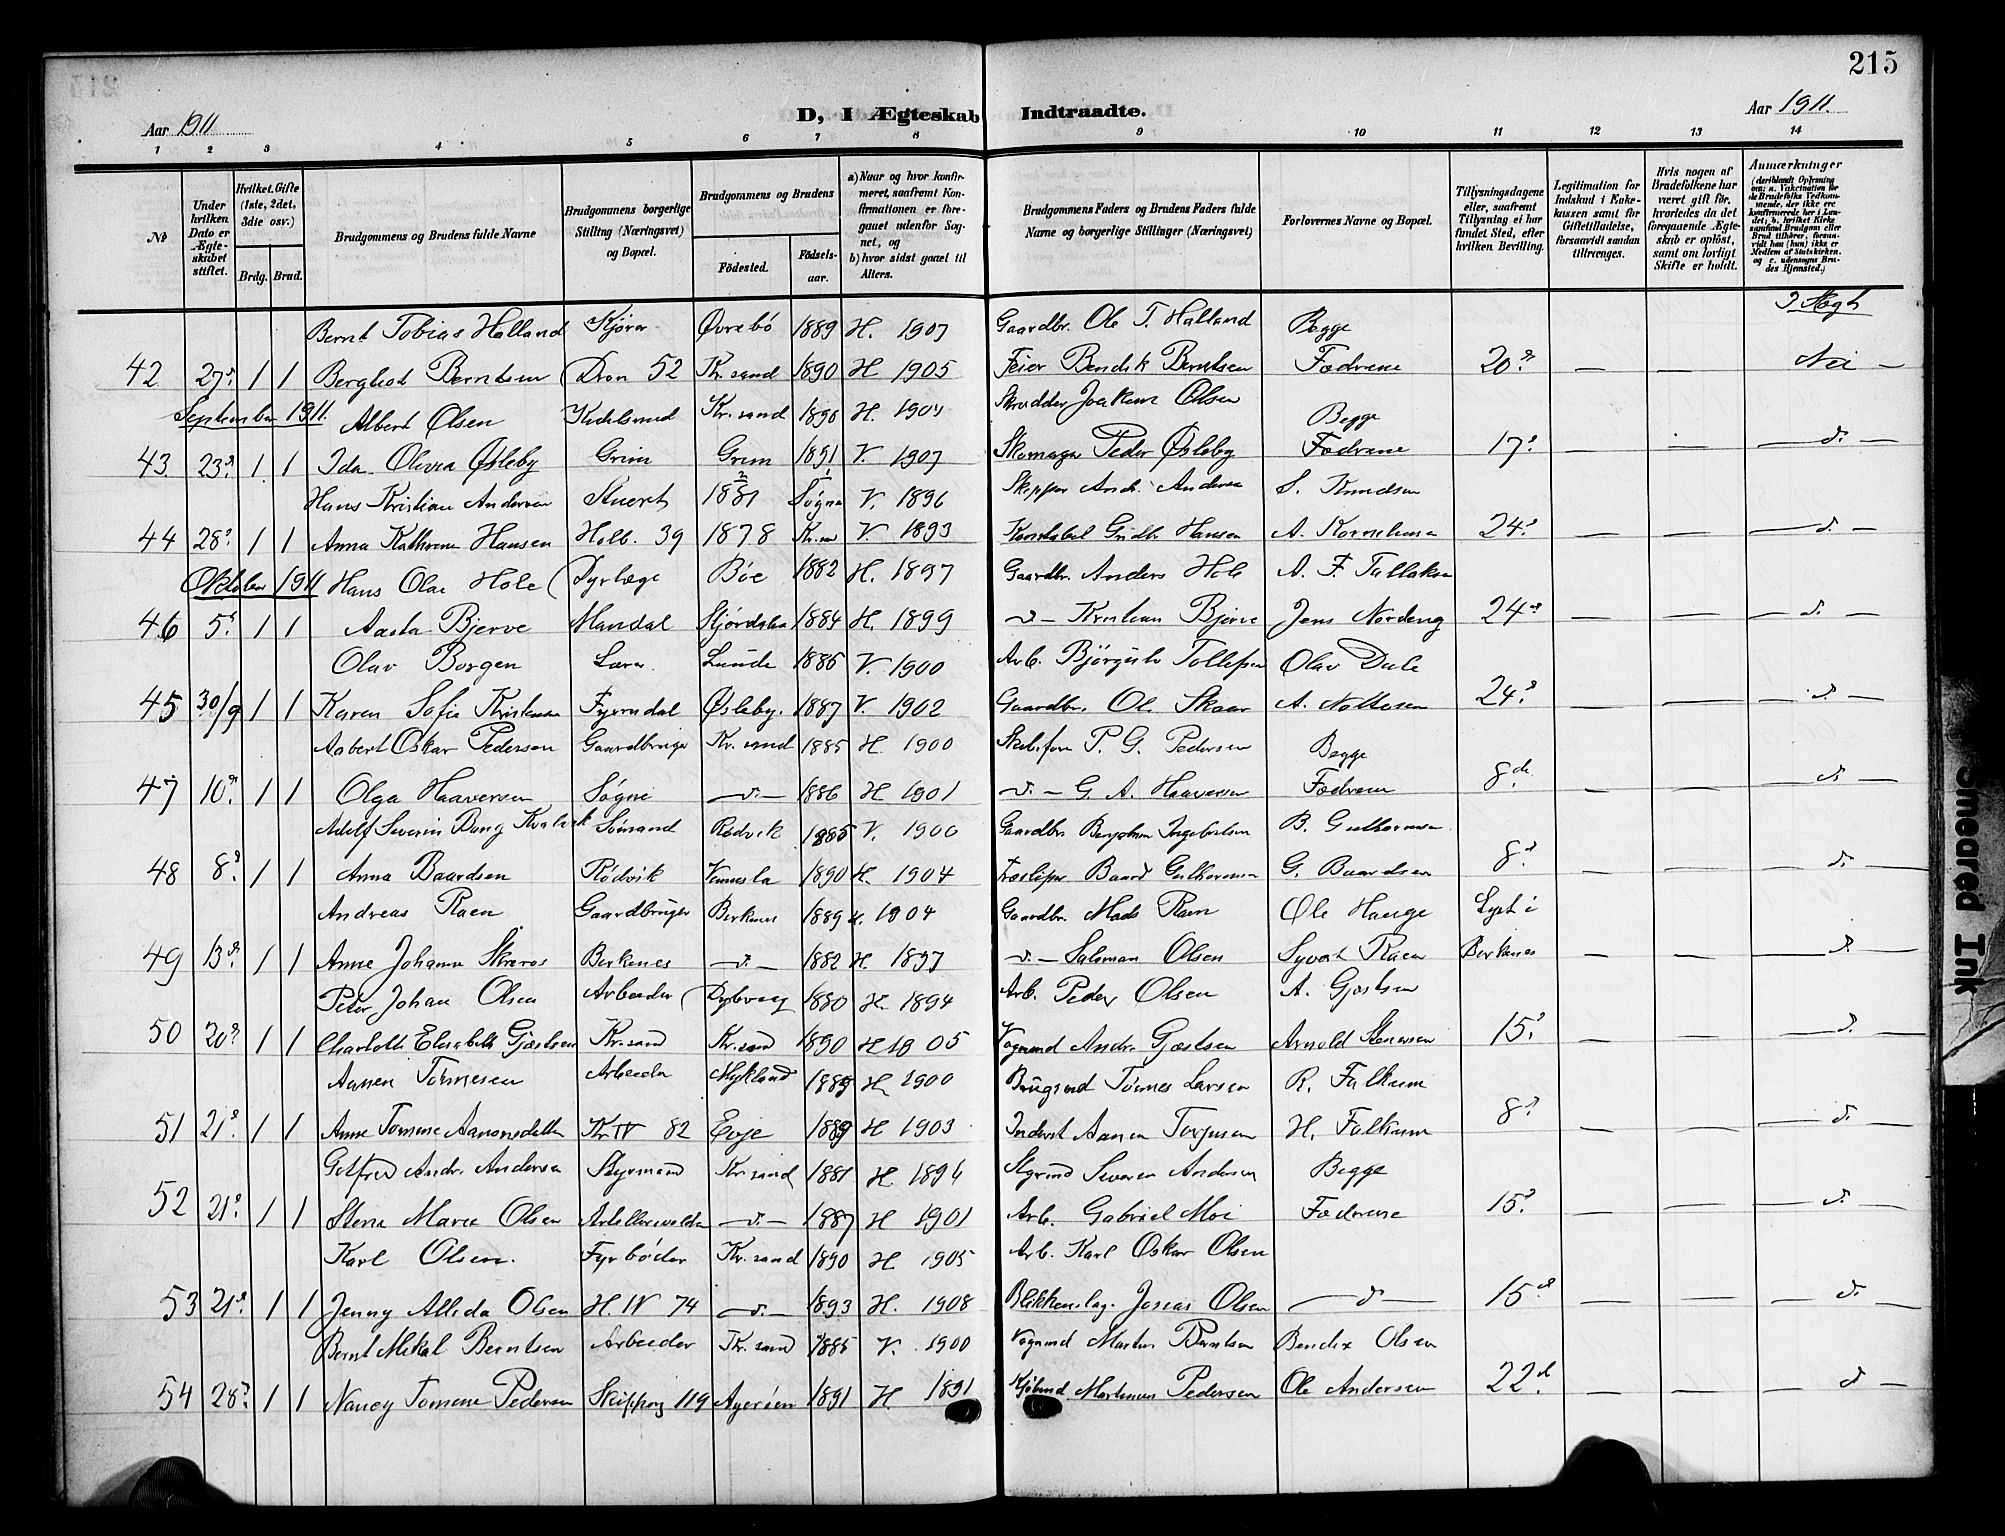 215
Aar 1911
D, I Ægteskab Indtraadte.
Aar 1911.
1 2 3 4 5 6 7 8 9 10 11 12 13 14
№
Under hvilken Dato er Ægteskabet stiftet.
Hvilket Gifte (1ste, 2det, 3die osv.)
Brdg. Brud.
Brudgommens og Brudens fulde Navne
Brudgommens borgerlige Stilling (Næringsvei) og Bopæl.
Brudgommens og Brudens
Fødested.
Fødselsaar.
a) Naar og hvor konfirmeret, saafremt Konfirmationen er foregaaet udenfor Sognet, og
b) hvor sidst gaaet til Alters.
Brudgommens Faders og Brudens Faders fulde Navne og borgerlige Stillinger (Næringsvei)
Forlovernes Navne og Bopæl.
Tillysningsdagene eller, saafremt Tillysning ei har fundet Sted, efter hvilken Bevilling.
Legitimation for Indskud i Enkekassen samt for Giftetilladelse, forsaavidt saadan tiltrænges.
Hvis nogen af Brudefolkene har været gift før, hvorledes da det foregaaende Ægteskab er opløst, samt om lovligt Skifte er holdt.
Anmærkninger
Bernt Tobias Halland Kjører Øvrebø 1889 H. 1907 Gaardbr. Ole T. Halland Begge
42 27d. 1 1 Berghit Berntsen Dron 52 Kr.sand 1890 H 1905 Feier Bendik Berntsen Fædrene 20d. — — Nei —
September 1911. Albert Olsen Kr.sand H. Skrædder Joakim Olsen Begge
43 23d. 1 1 Ida Olivia Øsleby Grim Grim 1891 V. 1907 Skomager Peder Øsleby Fædrene 17d. — — — d. —
Hans Kristian Andersen Stuert 1881 Søgne V. 1896 Skipper Andr. Andersen S. Knudsen
44 28d. 1 1 Anna Kathrine Hansen Holb. 39 1878 V. 1893 Konstabel Gudbr. Hansen A. Korneliusen 24d. — — — d. —
Oktober 1911 Hans Olai Hole Dyrlæge Bøe 1882 H. 1897 Gaardbr. Anders Hole
46 5d. 1 1 Aasta Bjerve Mandal Stjørdalen 1884 H. 1899 — d — Kristian Bjerve Jens Nordeng 24de — — — d. —
Olav Borgen Lærer Lunde 1885 V. 1900 Arb. Tollefsen Olav Dale
45 30/9 1 1 Karen Sofie Kristensen Fyresdal Øsleby. 1887 V. 1902 Gaardbr. Ole Skaar 24d. — — — d. —
Aabert Oskar Pedersen Gaardbruger Kr.sand 1885 H 1900 P. G. Pedersen Begge
47 10de 1 1 Olga Haaversen Søgne — d. — 1886 H 1901 — d. — G. A. Haaversen Fædrene 8de — — — d. —
Adolf Severin Bang 1885 V. 1900 Gaardbr. B. Guthormsen
48 8d. 1 1 Anna Baardsen Rødvik Vennesla 1890 H. 1904 Baard Guthormsen G. Baardsen 8d. — — — d. —
Andreas Raen Gaardbruger Birkenes 1889 H. 1904 Gaardbr. Mads Raen Ole Hauge Lyst i
49 13d. 1 1 Anne Johanne Skreros Birkenes — d. — 1882 H. 1897 — d. — Salomon Olsen Syvert Raen Birkenes — — — d. —
Peter Johan Olsen Arbeider Dybvaag 1880 H. 1894 Arb. Peder Olsen A. Gjøstsen
50 20d. 1 1 Charlotte Elisabeth Gjøstsen Kr.sand Kr.sand 1890 H 1905 Vognmd Andr. Gjøstsen Arnold Stenersen 15d. — — — d. —
Aanen Tørresen Arbeider Mykland 1885 H 1900 Brugsmd Tørres Larsen R. Falkum
51 21d. 1 1 Anne Tomine Aanonsdatter Kr IV 82 Evje 1889 H 1903 Inderst Aanen Torjusen H. Falkum 8d. — — — d. —
Gotfred Andr. Andersen Styrmand Kr.sand 1881 H 1894 Styrmd Severin Andersen Begge
52 21d. 1 1 Stena Marie Olsen — d. — 1887 H 1901 Arb. Gabriel Moi Fædrene 15d. — — — d. —
Karl Olsen. Fyrbøder Kr.sand 1890 H 1905 Arb. Karl Oskar Olsen
53 21d. 1 1 Jenny Allida Olsen H. IV 74 — d. — 1893 H. 1908 Blikkenslag. Josias Olsen — d — 15de — — — d. —
Bernt Mikal Berntsen Arbeider Kr.sand 1885 V. 1900 Vognmd Martin Berntsen Bendix Olsen
54 28d. 1 1 Nancy Tomine Pedersen Skipperg 119 Agerøen 1891 H 1891 Kjøbmd Martinus Pedersen Ole Andersen 22d. — — — d —
Smeared Ink